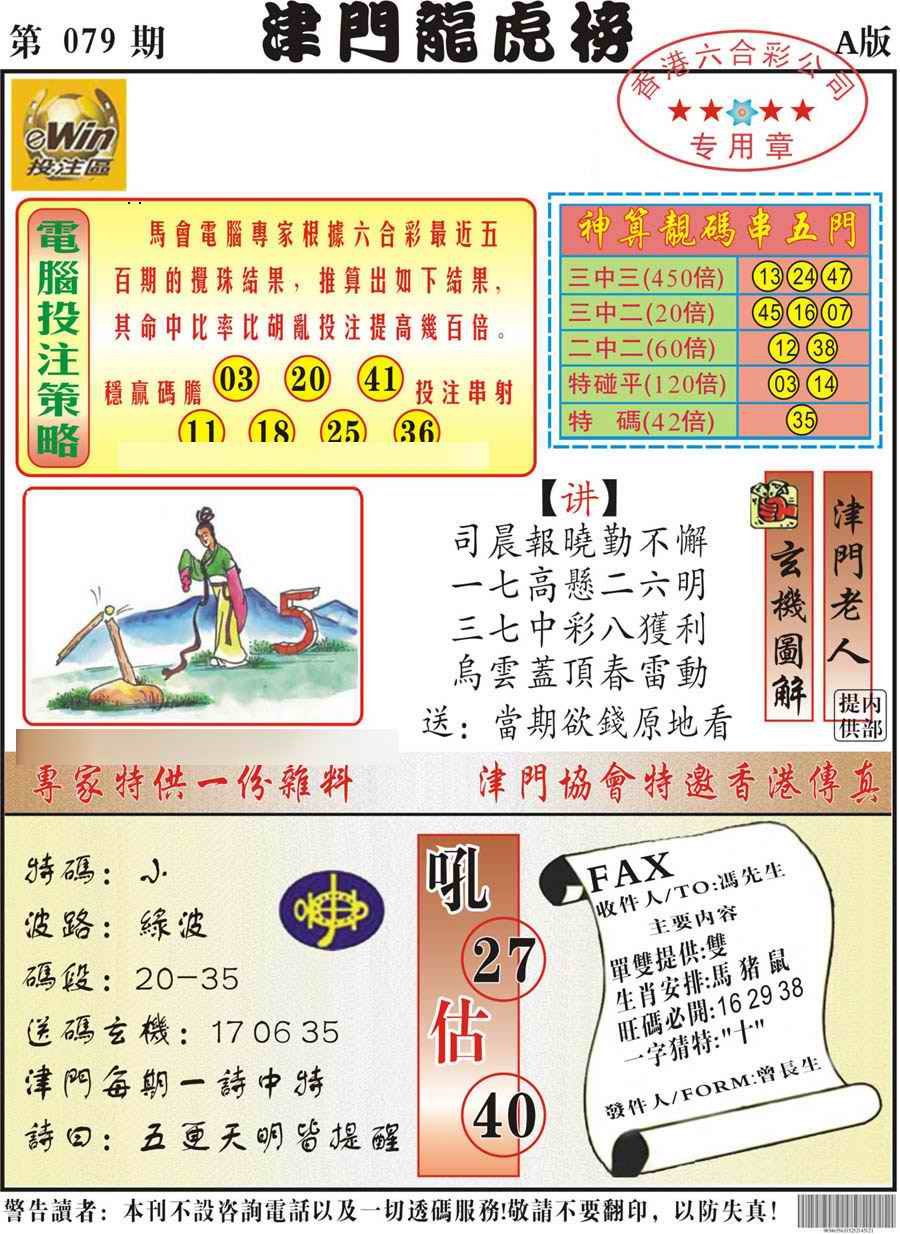 第 079 期
津門龍虎榜
A版
香港六合彩公司
专用章
eWin
投注區
電腦投注策略
馬會電腦專家根據六合彩最近五
百期的攪珠結果，推算出如下結果，
其命中比率比胡亂投注提高幾百倍。
穩贏碼膽 03 20 41 投注串射
11 18 25 36
神算靚碼串五門
三中三(450倍) 13 24 47
三中二(20倍) 45 16 07
二中二(60倍) 12 38
特碰平(120倍) 03 14
特 碼(42倍) 35
5
【讲】
司晨報曉勤不懈
一七高懸二六明
三七中彩八獲利
烏雲蓋頂春雷動
送：當期欲錢原地看
玄機圖解
津門老人
内部提供
專家特供一份雜料
津門協會特邀香港傳真
特碼：小
波路：綠波
碼段：20-35
送碼玄機：17 06 35
津門每期一詩中特
詩曰：五更天明皆提醒
吼
27
估
40
FAX
收件人/TO:馮先生
主要内容
單雙提供:雙
生肖安排:馬 猪 鼠
旺碼必開:16 29 38
一字猜特:"十"
發件人/FORM:曾長生
警告讀者：本刊不設咨詢電話以及一切透碼服務!敬請不要翻印，以防失真!